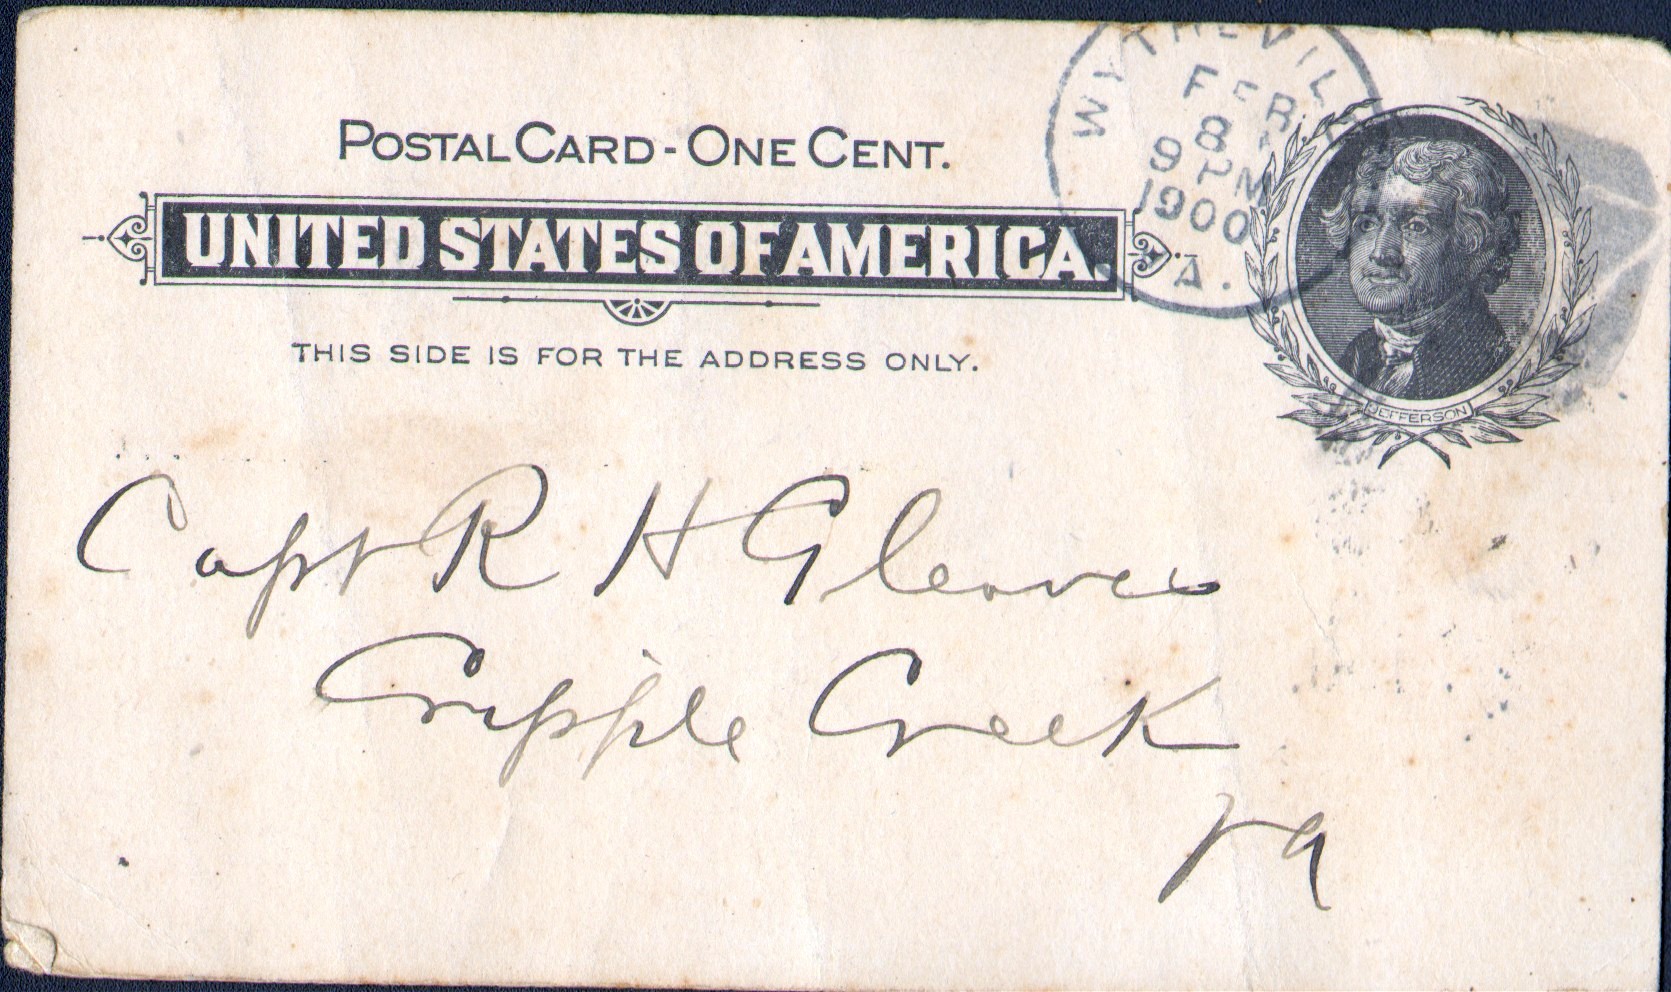 WYTHEVIL
FEB
8
9 PM
1900
A.
POSTAL CARD - ONE CENT.
UNITED STATES OF AMERICA.
THIS SIDE IS FOR THE ADDRESS ONLY.
JEFFERSON
Capt R H Gleaves
Cripple Creek
Va